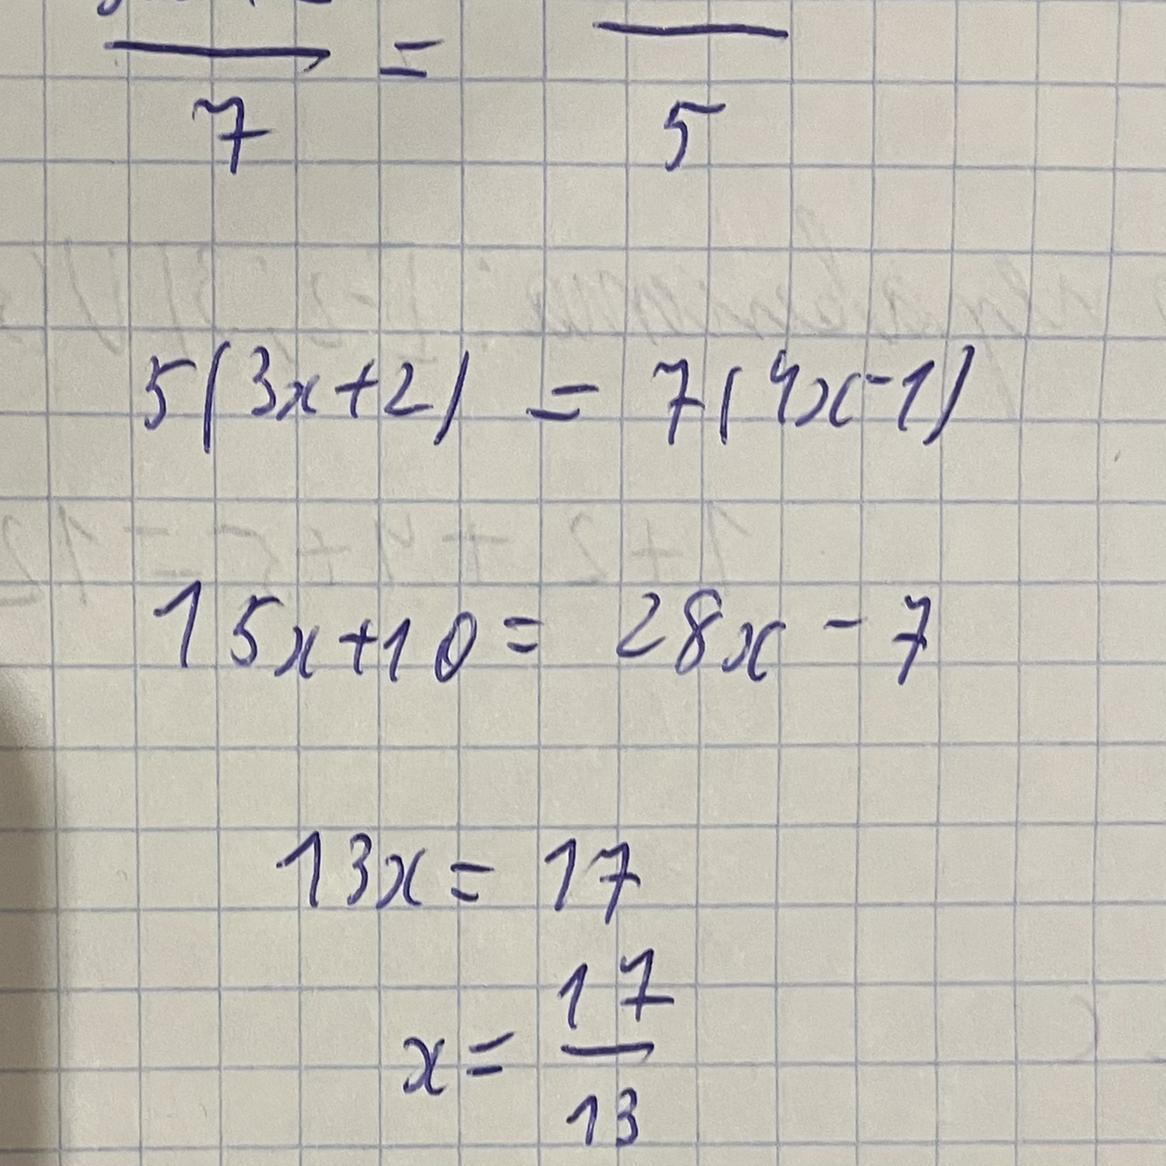 — = —
7 5
5(3x+2) = 7(4x-1)
15x+10= 28x - 7
13x= 17
x= 17/13